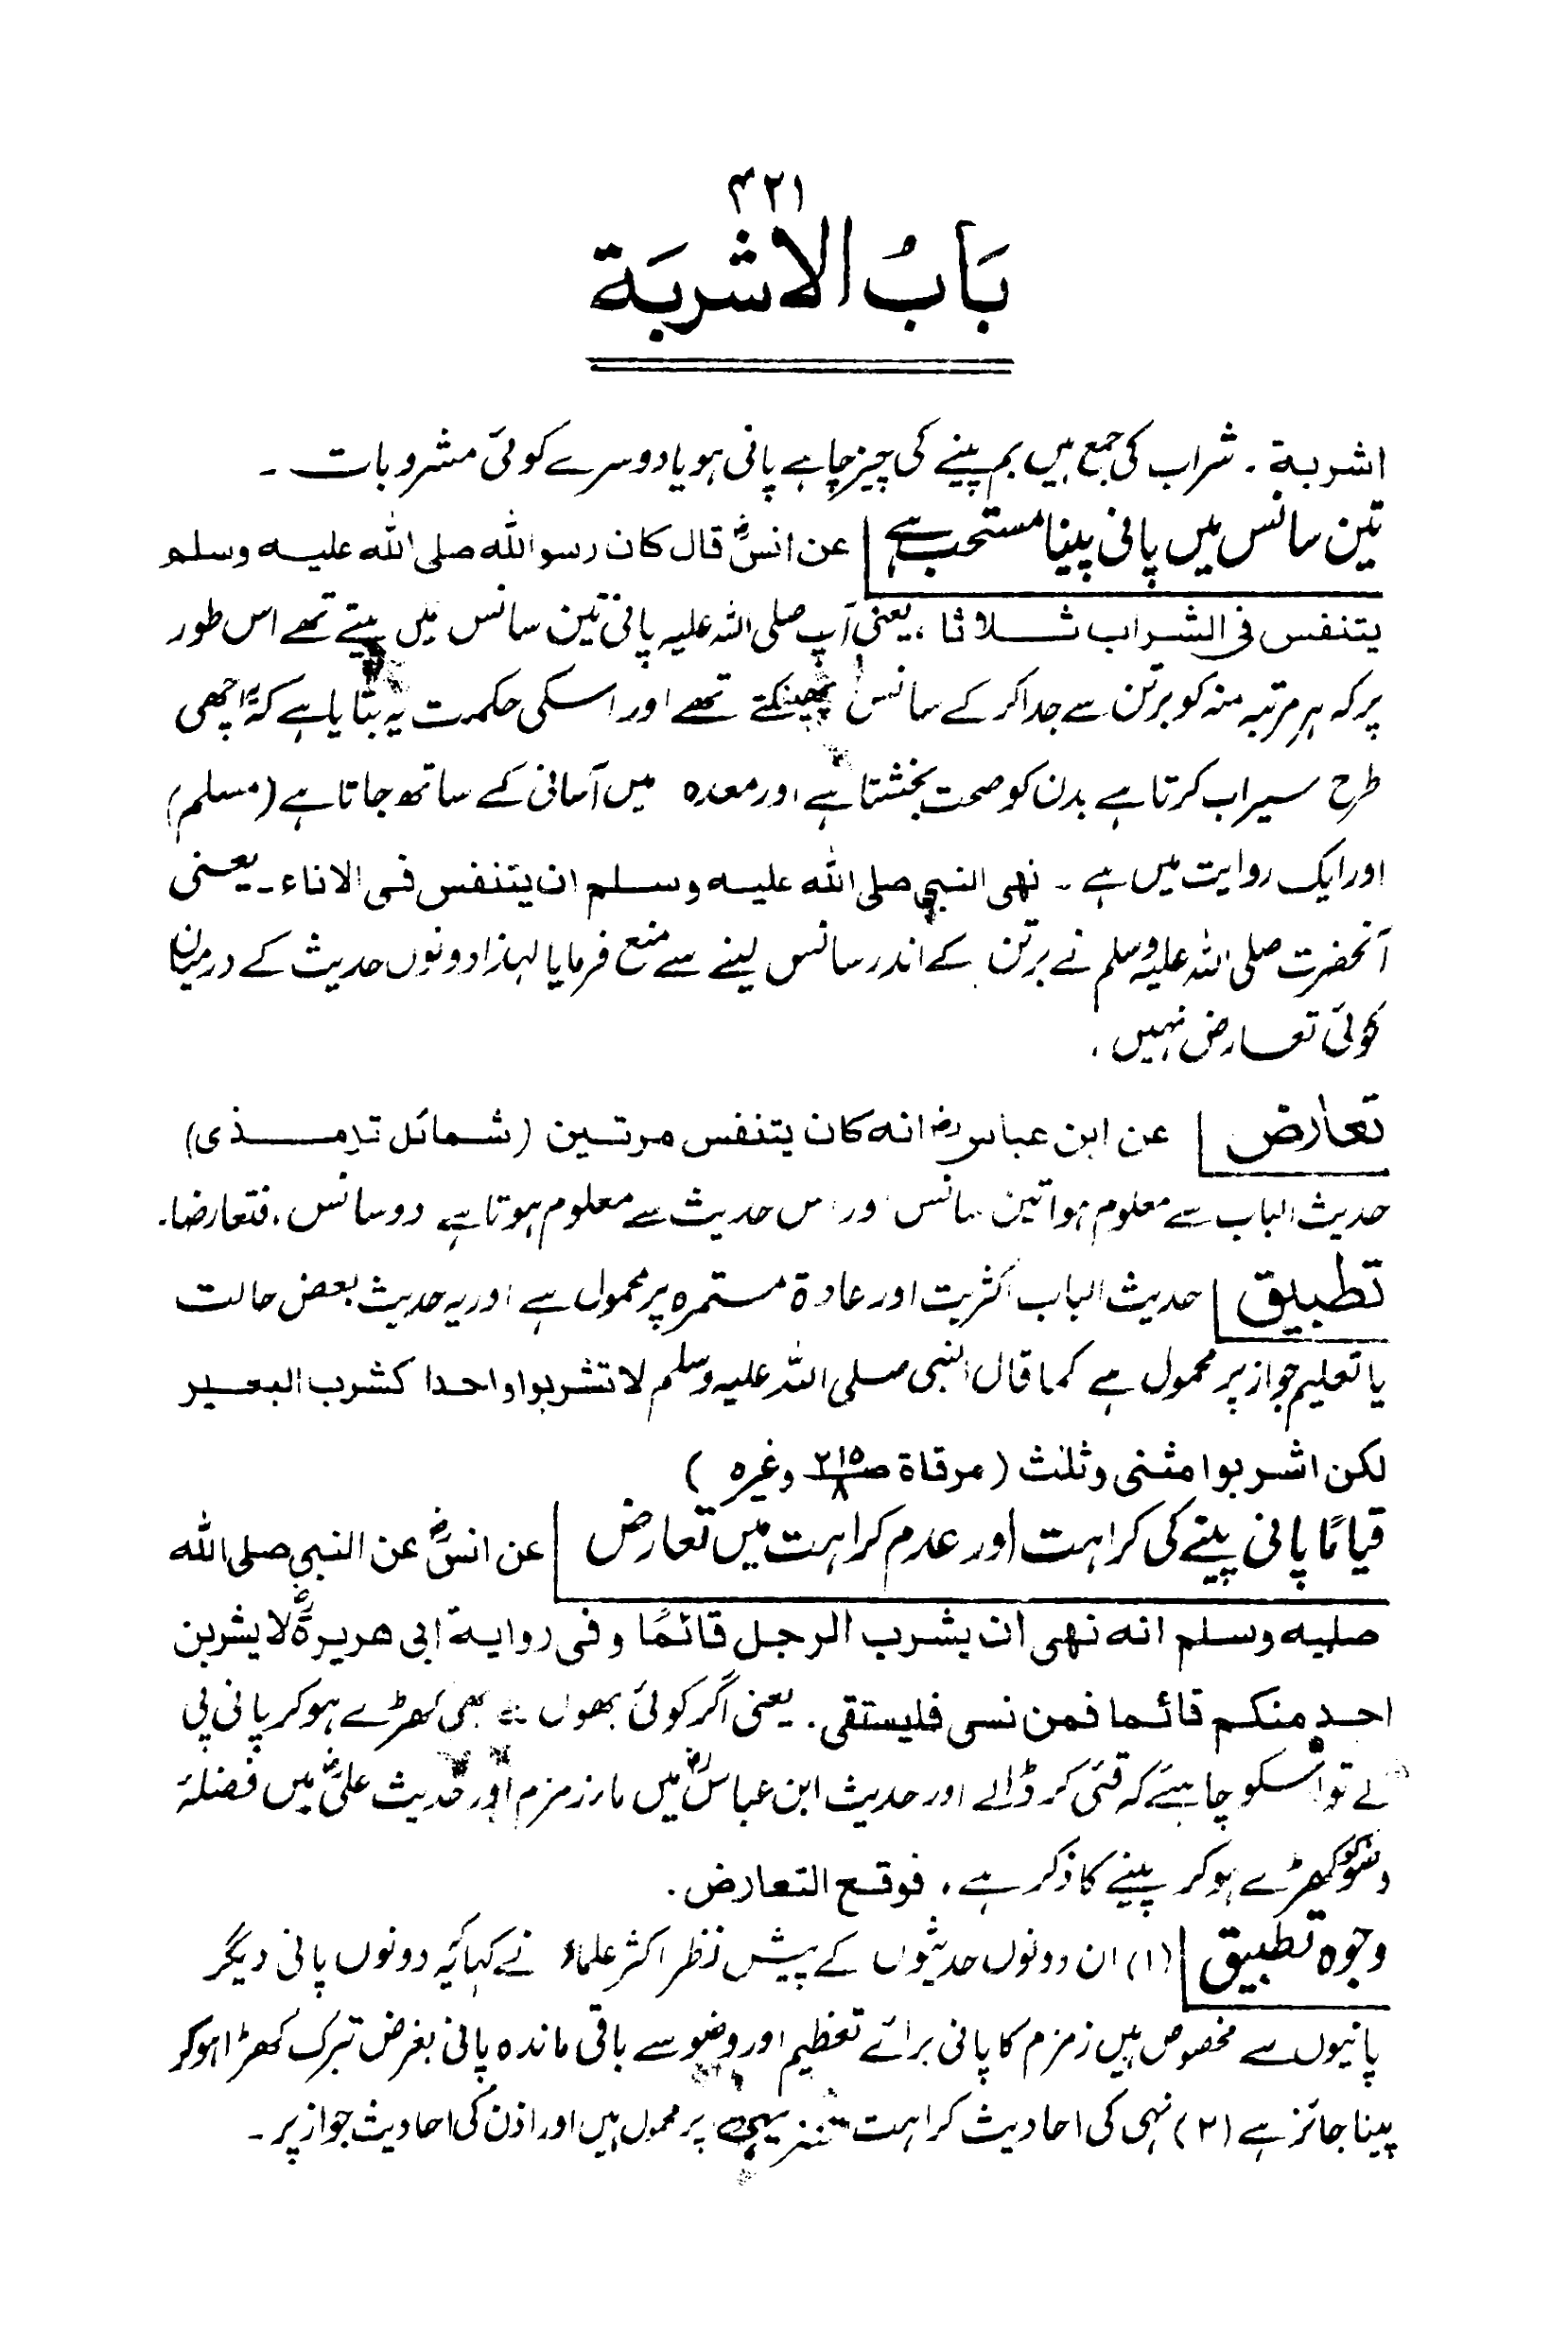 ۴۲۱
بَابُ الاشربَة
اشربة ۔ شراب کی جمع ہیں بم پینے کی چیز چاہے پانی ہو یا دوسرے کوئی مشروبات ۔
تین سانس میں پانی پینا مستحب ہے عن انسؓ قال کان رسو الله صلی الله علیه وسلم
یتنفس فی الشراب ثلاثا ، یعنی آپ صلی اللہ علیہ پانی تین سانس میں پیتے تھے اس طور
پر کہ ہر مرتبہ منہ کو برتن سے جدا کر کے سانس پھینکتے تھے اور اسکی حکمت یہ بتایا ہے کہ اچھی
طرح سیراب کرتا ہے بدن کو صحت بخشتا ہے اور معدہ میں آسانی کے ساتھ جاتا ہے (مسلم)
اور ایک روایت میں ہے ۔ نهی النبی صلی الله علیه وسلم ان یتنفس فی الاناء ۔ یعنی
آنحضرت صلی اللہ علیہ وسلم نے برتن کے اندر سانس لینے سے منع فرمایا لہذا دونوں حدیث کے درمیان
کوئی تعارض نہیں ۔
تعارض عن ابن عباسؓ انه کان یتنفس مرتین (شمائل ترمذی)
حدیث الباب سے معلوم ہوا تین سانس اور اس حدیث سے معلوم ہوتا ہے دو سانس ، فتعارضا ۔
تطبیق حدیث الباب اکثریت اور عادۃ مستمرہ پر محمول ہے اور یہ حدیث بعض حالت
یا تعلیم جواز پر محمول ہے کما قال النبی صلی اللہ علیہ وسلم لا تشربوا واحدا کشرب البعیر
لکن اشربوا مثنی وثلٰث (مرقاة ص۲۱۵/۸ وغیرہ )
قیامًا پانی پینے کی کراہت اور عدم کراہت میں تعارض عن انسؓ عن النبی صلی الله
صلیه وسلم انه نهی ان یشرب الرجل قائمًا وفی روایة ابی هریرةؓ لا یشربن
احد منکم قائما فمن نسی فلیستقی ۔ یعنی اگر کوئی بھول سے بھی کھڑے ہو کر پانی پی
لے تو اسکو چاہیئے کہ قئی کر ڈالے اور حدیث ابن عباسؓ میں ماء زمزم اور حدیث علیؓ میں فضلۂ
وضو کو کھڑے ہو کر پینے کا ذکر ہے ، فوقع التعارض ۔
وجوہ تطبیق (۱) ان دونوں حدیثوں کے پیش نظر اکثر علماء نے کہا کہ یہ دونوں پانی دیگر
پانیوں سے مخصوص ہیں زمزم کا پانی برائے تعظیم اور وضو سے باقی ماندہ پانی بغرض تبرک کھڑا ہو کر
پینا جائز ہے (۲) نہی کی احادیث کراہت تنزیہی پر محمول ہیں اور اذن کی احادیث جواز پر ۔